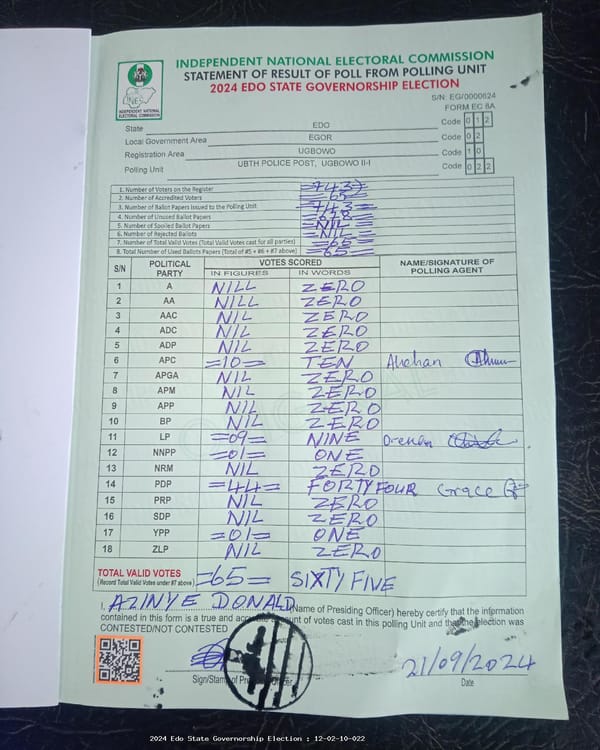 INDEPENDENT NATIONAL ELECTORAL COMMISSION
STATEMENT OF RESULT OF POLL FROM POLLING UNIT
2024 EDO STATE GOVERNORSHIP ELECTION
INEC
INDEPENDENT NATIONAL ELECTORAL COMMISSION
S/N: EG/0000624
FORM EC 8A
State EDO Code 0 1 2
Local Government Area EGOR Code 0 2
Registration Area UGBOWO Code 1 0
Polling Unit UBTH POLICE POST, UGBOWO II-I Code 0 2 2
1. Number of Voters on the Register =743=
2. Number of Accredited Voters =65=
3. Number of Ballot Papers issued to the Polling Unit =743=
4. Number of Unused Ballot Papers =678=
5. Number of Spoiled Ballot Papers =NIL=
6. Number of Rejected Ballots =NIL=
7. Number of Total Valid Votes (Total Valid Votes cast for all parties) =65=
8. Total Number of Used Ballots Papers (Total of #5 + #6 + #7 above) =65=
S/N POLITICAL PARTY VOTES SCORED NAME/SIGNATURE OF POLLING AGENT
IN FIGURES IN WORDS
1 A NILL ZERO
2 AA NILL ZERO
3 AAC NIL ZERO
4 ADC NIL ZERO
5 ADP NIL ZERO
6 APC =10= TEN
7 APGA NIL ZERO
8 APM NIL ZERO
9 APP NIL ZERO
10 BP NIL ZERO
11 LP =09= NINE
12 NNPP =01= ONE
13 NRM NIL ZERO
14 PDP =44= FORTY FOUR Grace
15 PRP NIL ZERO
16 SDP NIL ZERO
17 YPP =01= ONE
18 ZLP NIL ZERO
TOTAL VALID VOTES =65= SIXTY FIVE
(Record Total Valid Votes under #7 above)
I, AZINYE DONALD (Name of Presiding Officer) hereby certify that the information
contained in this form is a true and accurate account of votes cast in this polling Unit and that the election was
CONTESTED/NOT CONTESTED
21/09/2024
Sign/Stamp of Presiding Officer Date
2024 Edo State Governorship Election : 12-02-10-022